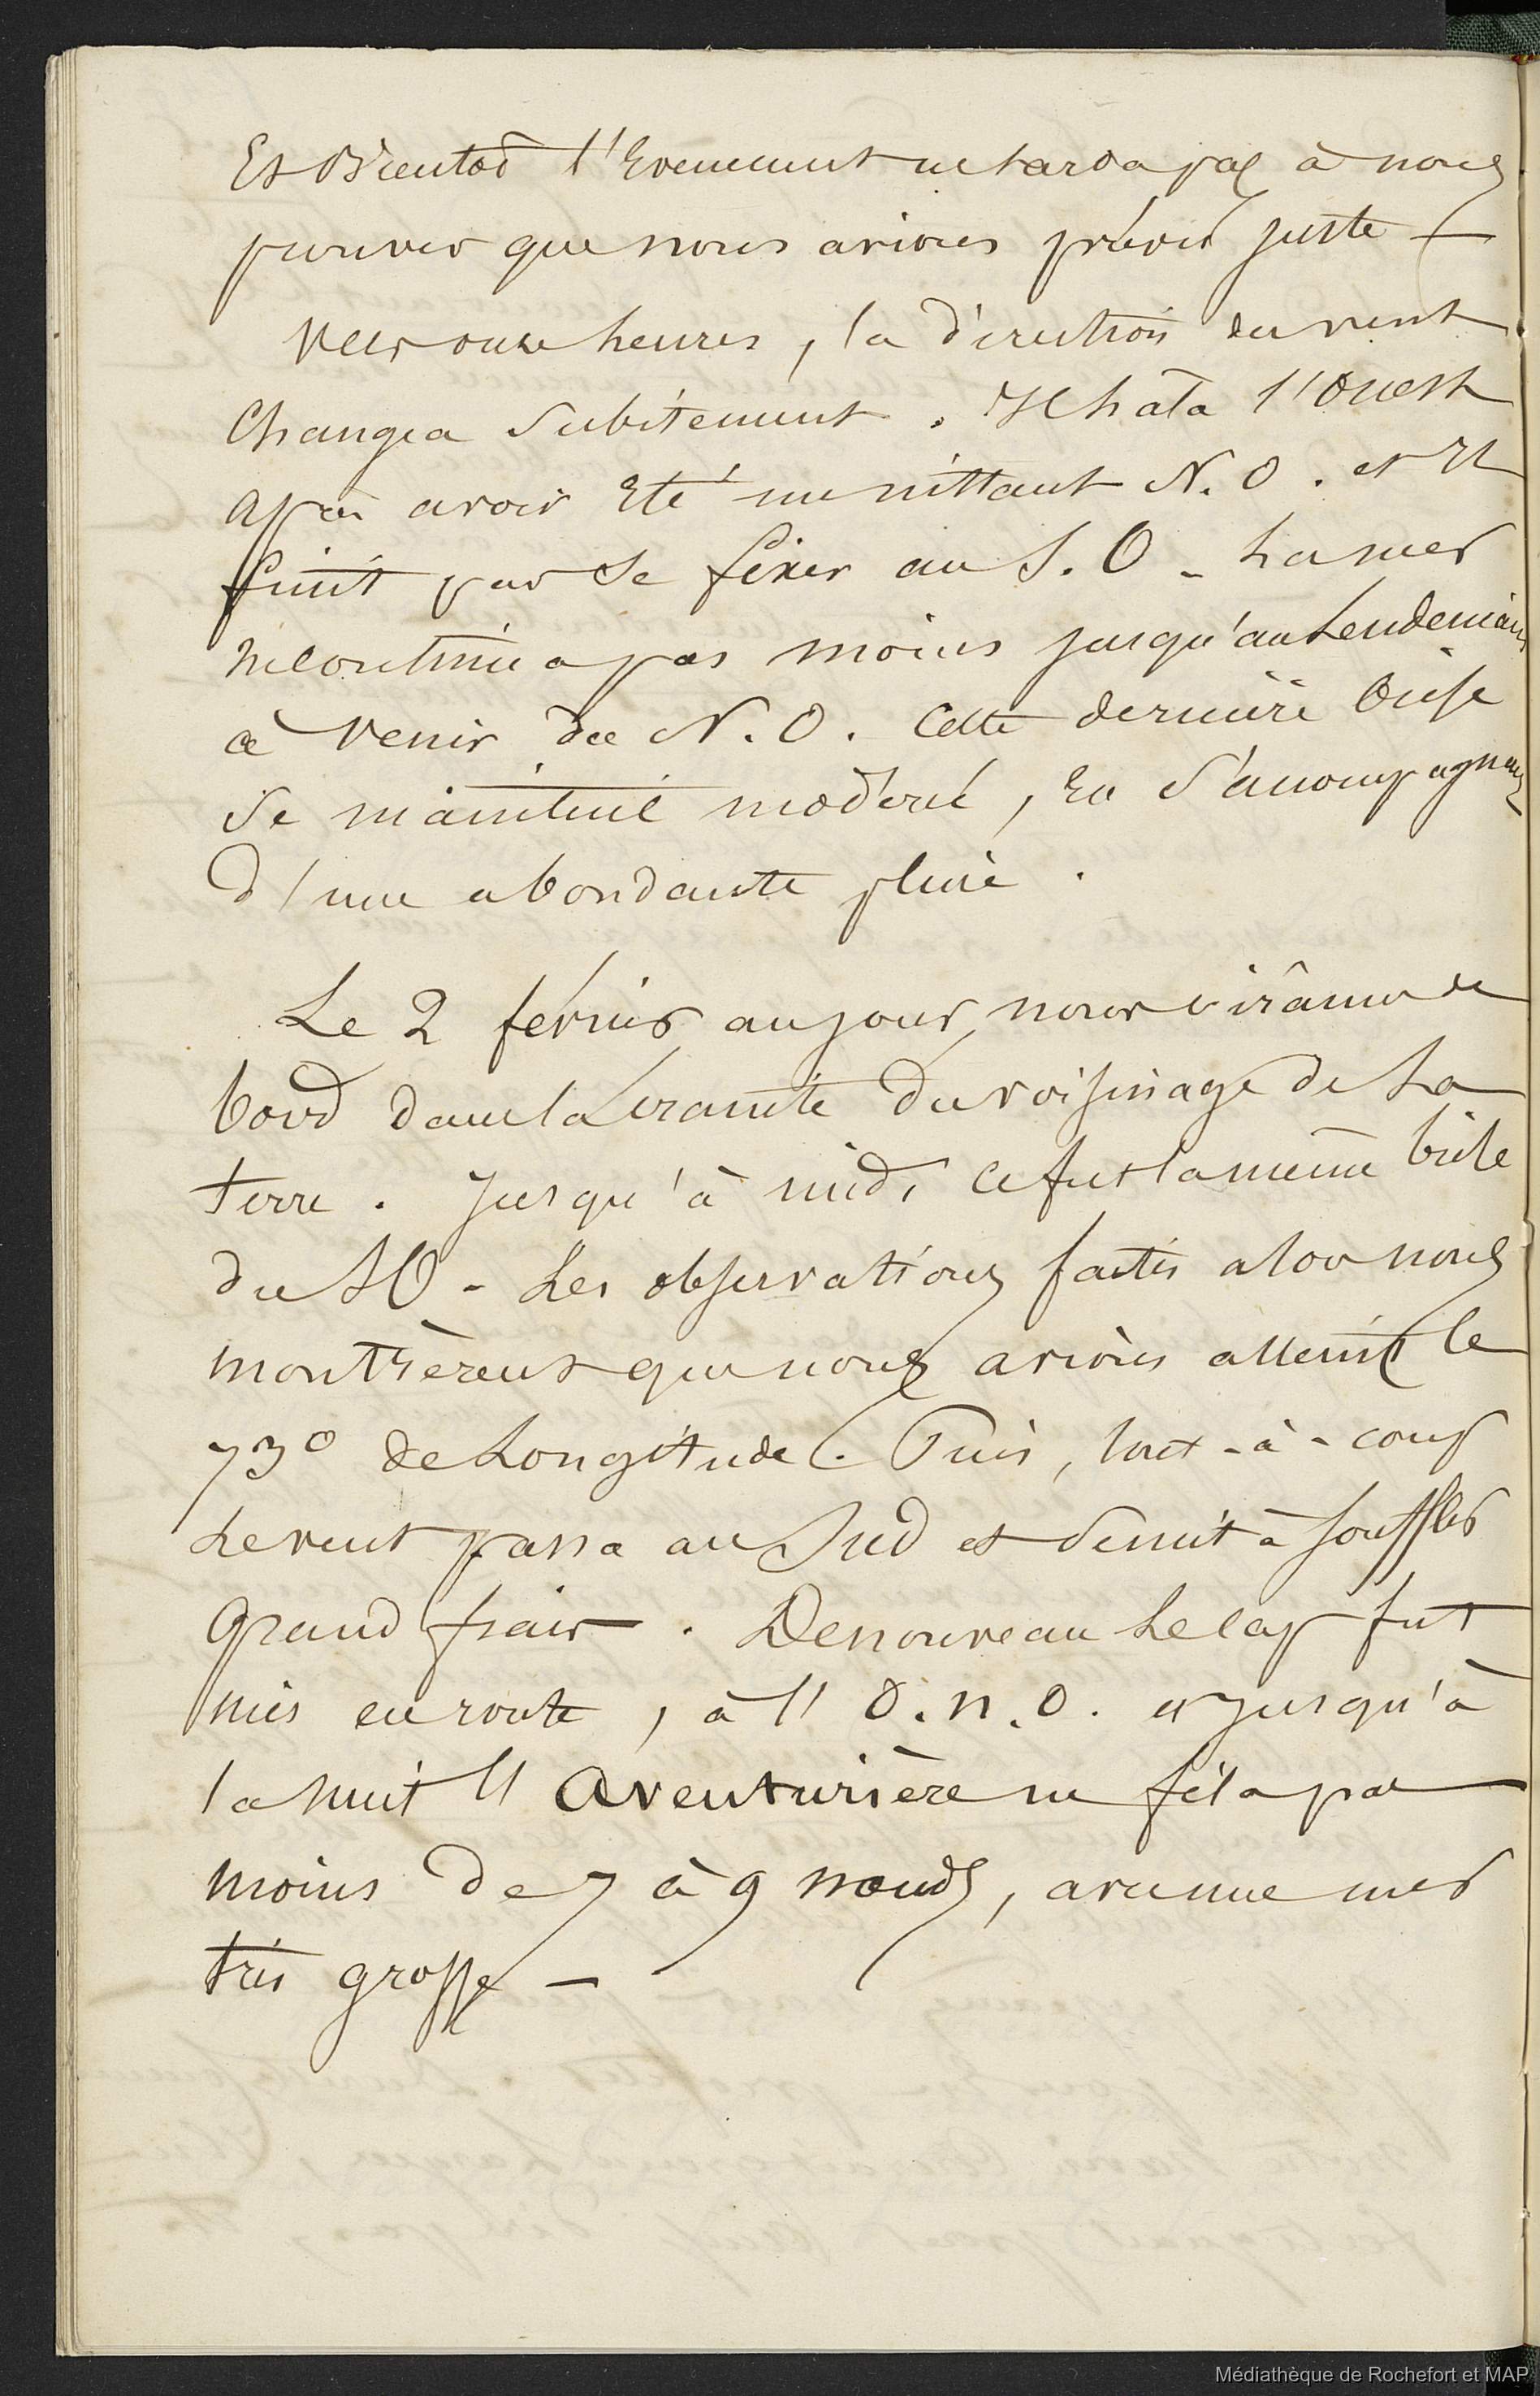 Et bientôt l'Evenement ne tarda pas à nous
prouver que nous avions prévu juste —
Vers onze heures, la direction du vent
Changea Subitement. Il hâla l'Ouest
après avoir Eté un instant N.O. et Il
finit par se fixer au S.O - La mer
ne continua pas moins jusqu'au Lendemain
à venir du N.O. Cette dernière brise
se maintint modéré, en s'accompagnant
d'une abondante pluie.
Le 2 février au jour, nous virâmes de
bord dans la crainte du voisinage de La
terre. Jusqu'à midi ce fut la même brise
du SO - Les observations faites alors nous
montrèrent que nous avions atteint le
73° de Longitude. Puis, tout-à-coup
Le vent passa au Sud et se mit à souffler
Grand frais. De nouveau Le cap fut
mis en route, à l'O.N.O. et jusqu'à
la nuit l'Aventurière ne fila pas
moins de 7 à 9 nœuds, avec une mer
très grosse —
Médiathèque de Rochefort et MAP